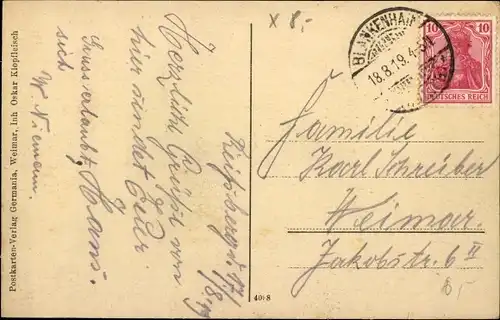 x 8,-
BLANKENHAIN
18.8.19. 4-5N
10 10
DEUTSCHES REICH
17/8 19
Herzliche Grüße von
hier sendet Euer
Hans.
Gruss erlaubt
sich
W. Niemann.
Familie
Karl Schreiber
Weimar.
Jakobstr. 6 II
Postkarten-Verlag Germania, Weimar, Inh Oskar Kloepfleisch
4098